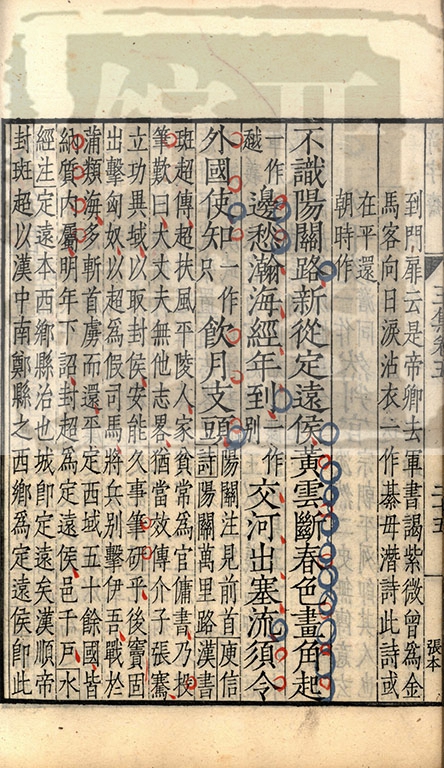 到門扉云是帝卿去軍書謁紫微曾為金
馬客向日淚沾衣一作綦毋潛詩此詩或
在平還
朝時作
不識陽關路新從定遠侯黃雲斷春色畫角起
一作
越
邊愁瀚海經年到一作
別
交河出塞流須令
外國使知一作
只
飲月支頭陽關注見前首庾信
詩陽關萬里路漢書
班超傳超扶風平陵人家貧常為官傭書乃投
筆歎曰大丈夫無他志畧猶當效傅介子張騫
立功異域以取封侯安能久事筆研乎後竇固
出擊匈奴以超為假司馬將兵別擊伊吾戰於
蒲類海多斬首虜而還平定西域五十餘國皆
納質內屬明年下詔封超為定遠侯邑千戶水
經注定遠本西鄉縣治也城即定遠矣漢順帝
封班超以漢中南鄭縣之西鄉為定遠侯即此
二十五
張本